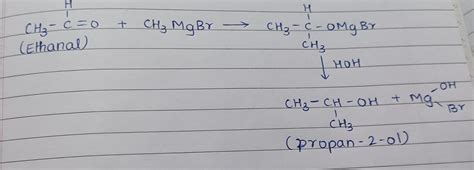 H H
CH₃ – C = O + CH₃MgBr ⟶ CH₃ – C – OMgBr
(Ethanal) CH₃
↓ HOH
CH₃ – CH – OH + Mg OH Br
CH₃
(propan-2-ol)